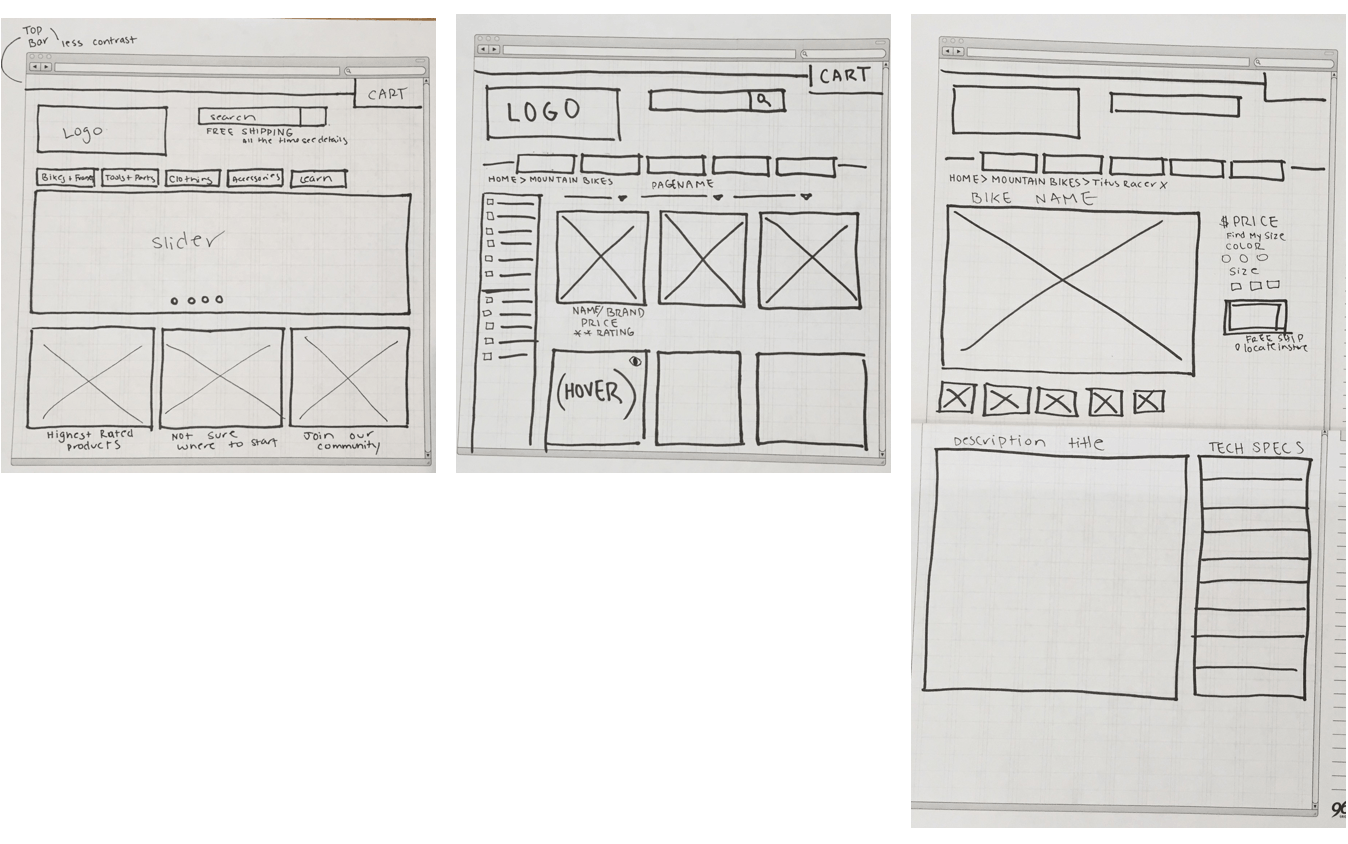 TOP
BAR
less contrast
CART
Logo
search
FREE SHIPPING
all the time see details
Bikes + Frames
Tools + Parts
Clothing
Accessories
Learn
slider
Highest Rated
products
Not sure
where to start
Join our
community
CART
LOGO
HOME > MOUNTAIN BIKES
PAGENAME
NAME/BRAND
PRICE
** RATING
(HOVER)
HOME > MOUNTAIN BIKES > Titus Racer X
BIKE NAME
$ PRICE
Find My Size
COLOR
Size
FREE SHIP
locate in store
Description title
TECH SPECS